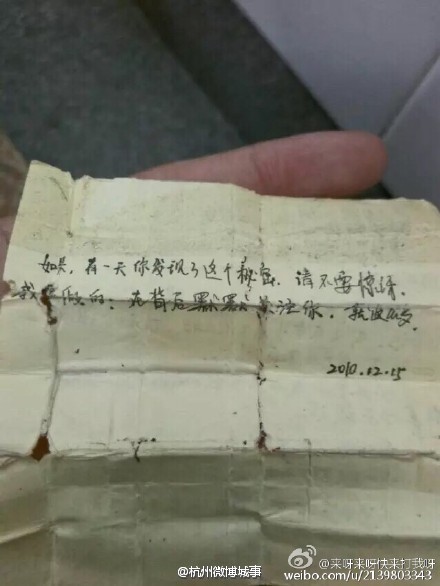 如果,有一天你发现了这个秘密,请不要惊讶,
我要做的,在背后默默关注你,就这么多
2010.12.25
@杭州微博城事
@来呀来呀快来打我呀
weibo.com/u/2139803343